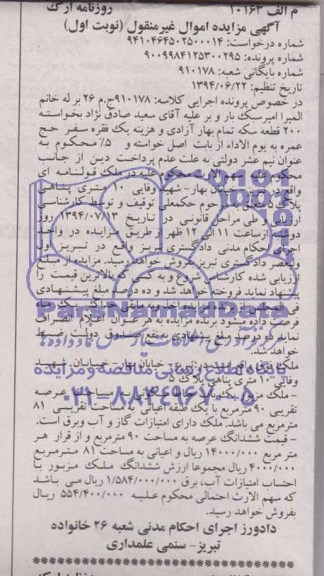 م الف ۱۰۱۶۳ روزنامه ارک
آگهی مزایده اموال غیرمنقول (نوبت اول)
شماره درخواست: ۹۴۱۰۴۶۴۵۰۲۵۰۰۰۱۴
شماره پرونده: ۹۰۰۹۹۸۴۱۲۵۳۰۰۲۹۵
شماره بایگانی شعبه: ۹۱۰۱۷۸
تاریخ تنظیم: ۱۳۹۴/۰۶/۲۲
در خصوص پرونده اجرایی کلاسه: ۹۱۰۱۷۸ج.م ۲۶ بر له خانم
المیرا امیرسبک بار و بر علیه آقای سعید صادق نژاد بخواسته
۲۰۰ قطعه سکه تمام بهار آزادی و هزینه یک فقره سفر حج
عمره به یوم الاداء از بابت اصل خواسته و ۵٪ محکوم به
عنوان نیم عشر دولتی به علت عدم پرداخت دین از جانب
علیه در ملک قولنامه ای
واقع در خیابان بهار- شهید وفایی ۱۰ متری پناهی
پلاک ۵ توقیف و توسط کارشناسی
طی مراحل قانونی در تاریخ ۱۳۹۴/۰۷/۱۳ روز
دوشنبه از ساعت ۱۱ الی ۱۲ ظهر از طریق مزایده در واحد
اجرای احکام مدنی دادگستری تبریز واقع در تبریز اول
دادگستری تبریز بفروش خواهد رسید. مزایده از مبلغ
ارزیابی شده کارشناسی شروع و به کسی که بالاترین قیمت را
پیشنهاد نماید فروخته خواهد شد و ده درصد مبلغ پیشنهادی
فرصت داده میشود برنده مزایده به هر عنوان اعلام انصراف
نماید ده درصد مبلغ پیشنهادی به نفع صندوق دولت ضبط
خواهد شد.
خیابان بهار- خیابان شهید
وفایی ۱۰ متری پناهی پلاک ۵
عرصه
تقریبی ۹۰ مترمربع با یک طبقه اعیانی به مساحت تقریبی ۸۱
مترمربع می باشد. ملک دارای امتیازات گاز و آب وبرق است.
- قیمت ششدانگ عرصه به مساحت ۹۰ مترمربع و از قرار هر
متر مربع ۱۴/۰۰۰/۰۰۰ ریال و اعیانی به مساحت ۸۱ مترمربع
۴/۰۰۰/۰۰۰ ریال مجموعا ارزش ششدانگ ملک مزبور با
احتساب امتیازات آب، برق ۱/۵۸۴/۰۰۰/۰۰۰ ریال می باشد
که سهم الارث احتمالی محکوم علیه ۵۵۴/۴۰۰/۰۰۰ ریال
بفروش خواهد رسید.
دادورز اجرای احکام مدنی شعبه ۲۶ خانواده
تبریز- سنمی علمداری
ParsNamadData
پایگاه اطلاع رسانی مناقصه و مزایده
۰۲۱-۸۸۳۴۹۶۷۰-۵